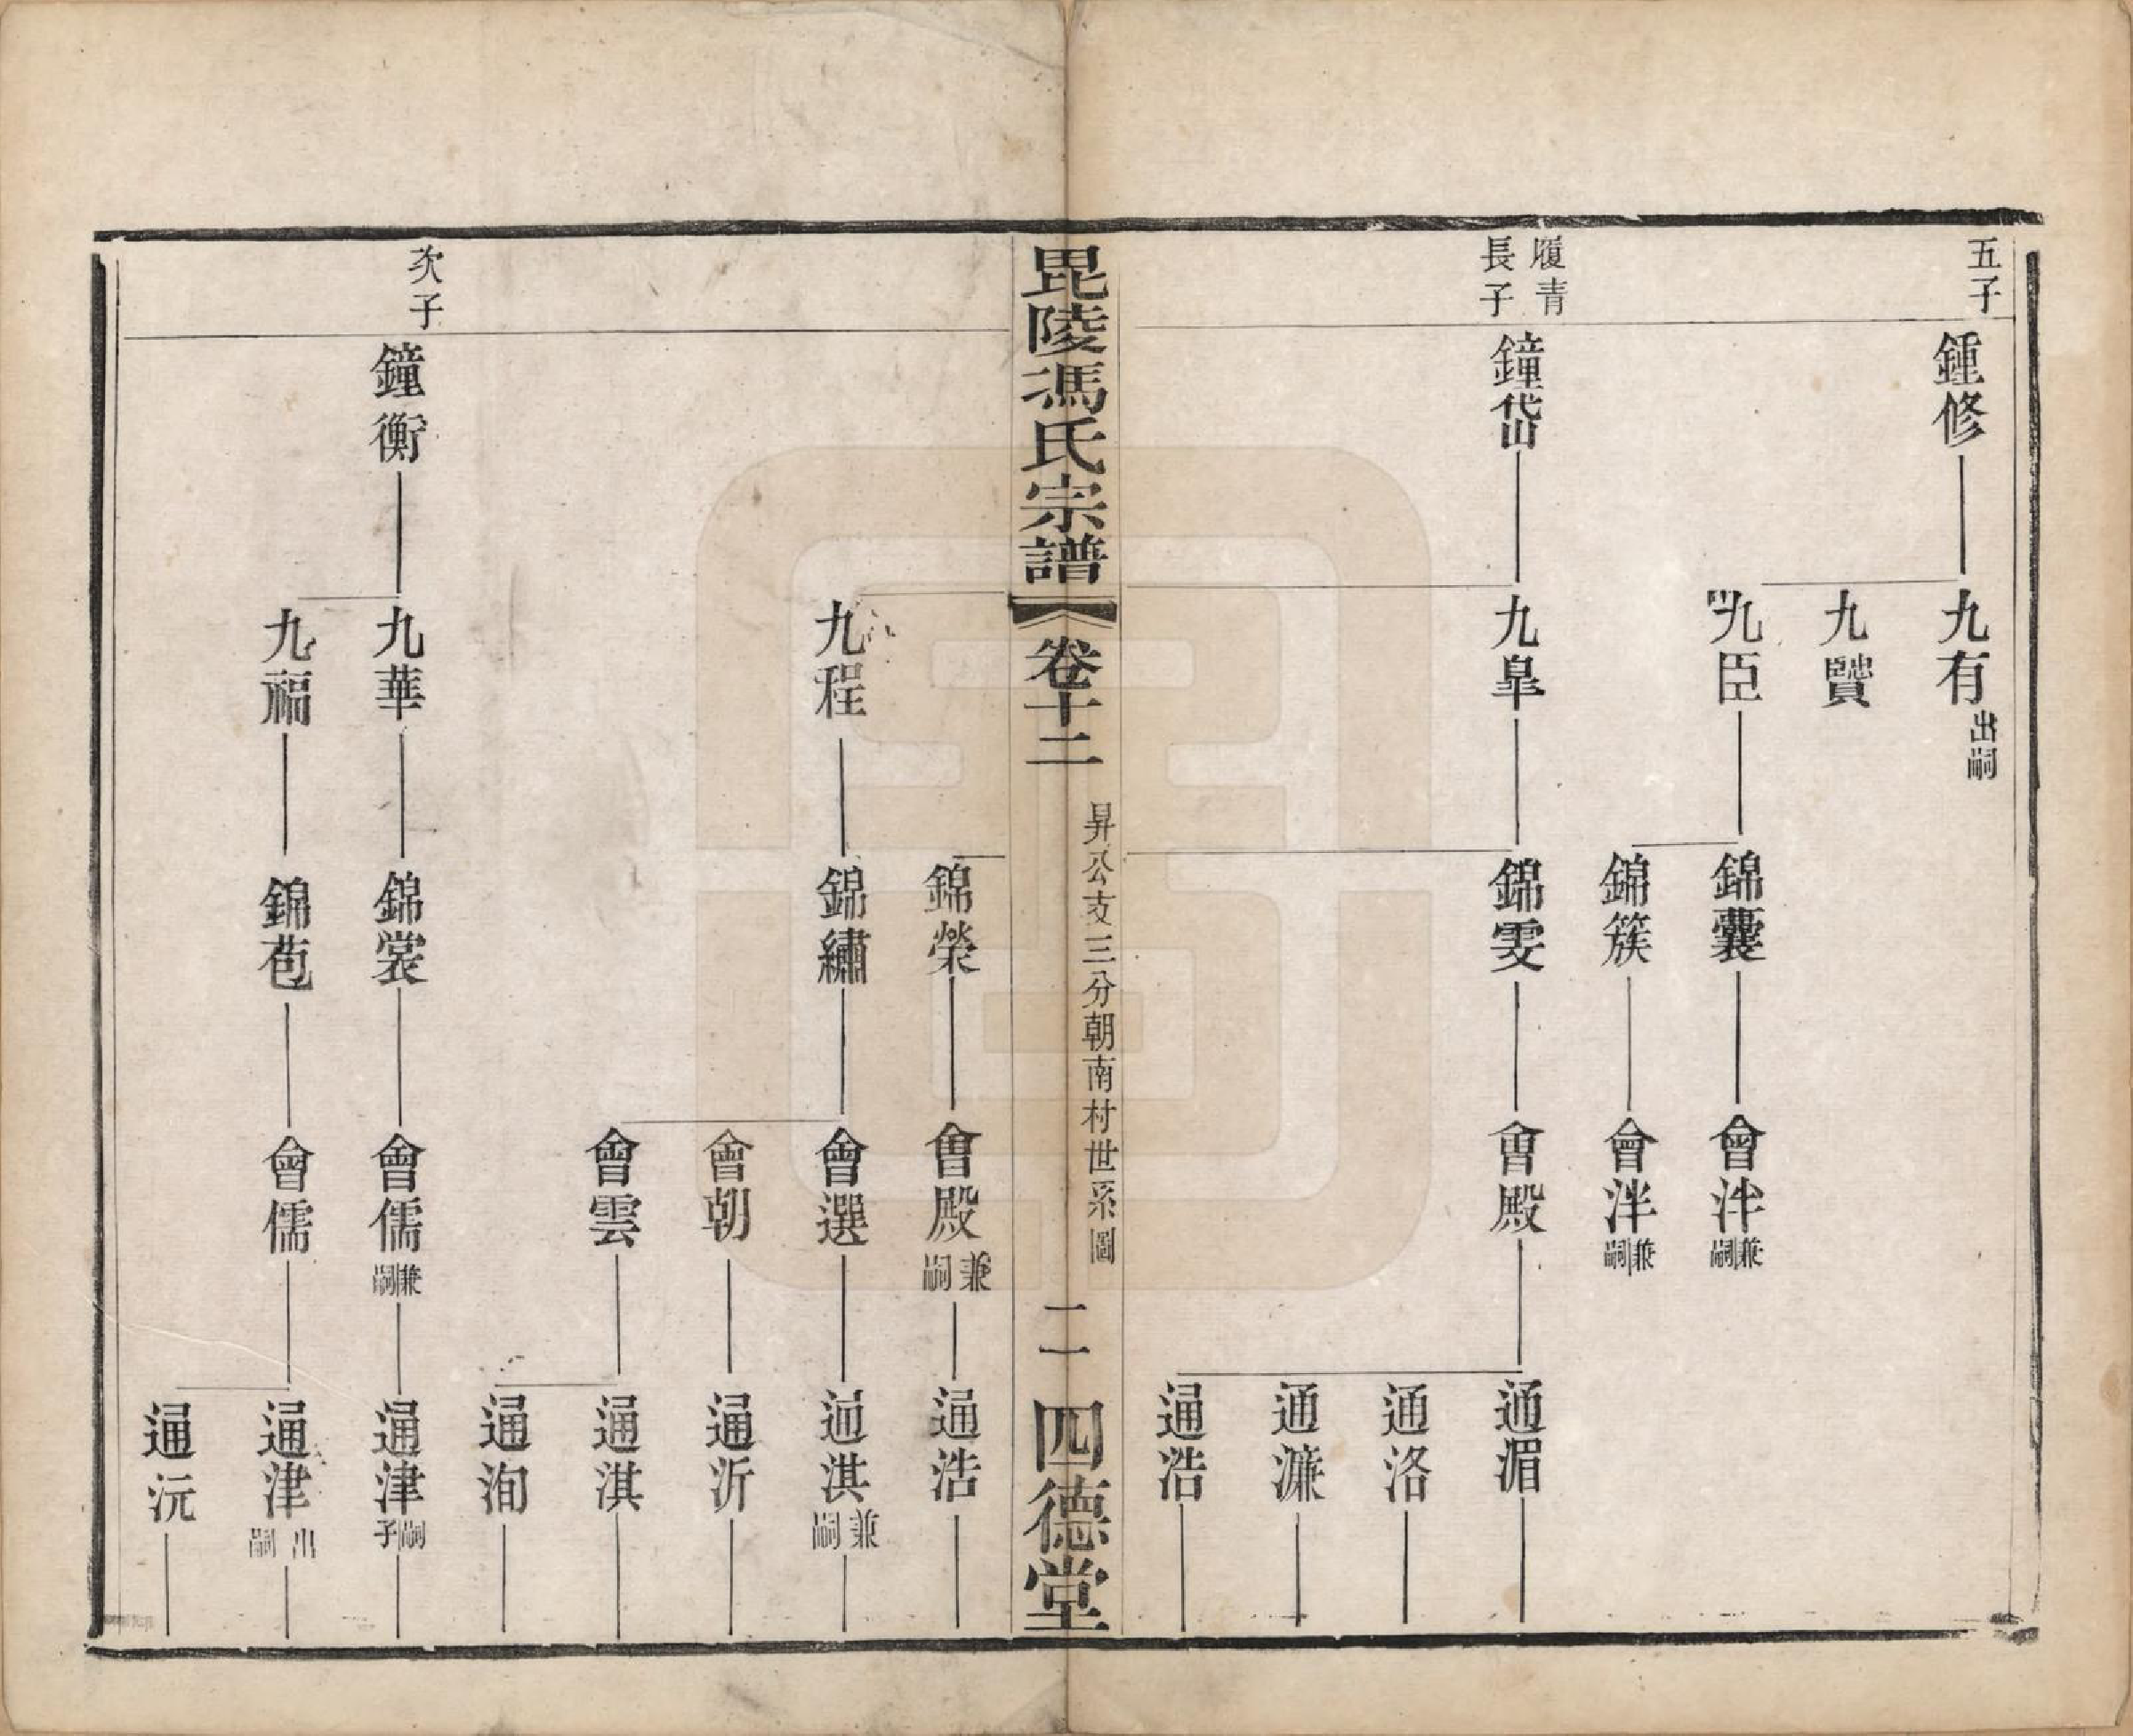 五子
鍾修
九有
出嗣
九臋
九臣
錦囊
會泮
兼嗣
錦簇
會泮
兼嗣
履青
長子
鐘岱
九皐
錦雯
會殿
通湄
通洛
通濂
通浩
毘陵馮氏宗譜
卷十二
昇公支三分朝南村世系圖
二
四德堂
錦榮
會殿
兼嗣
通浩
九程
錦繡
會選
通淇
兼嗣
會朝
通沂
會雲
通淇
通洵
次子
鐘衡
九華
錦裳
會儒
兼嗣
通津
嗣子
九福
錦苞
會儒
通津
出嗣
通沅